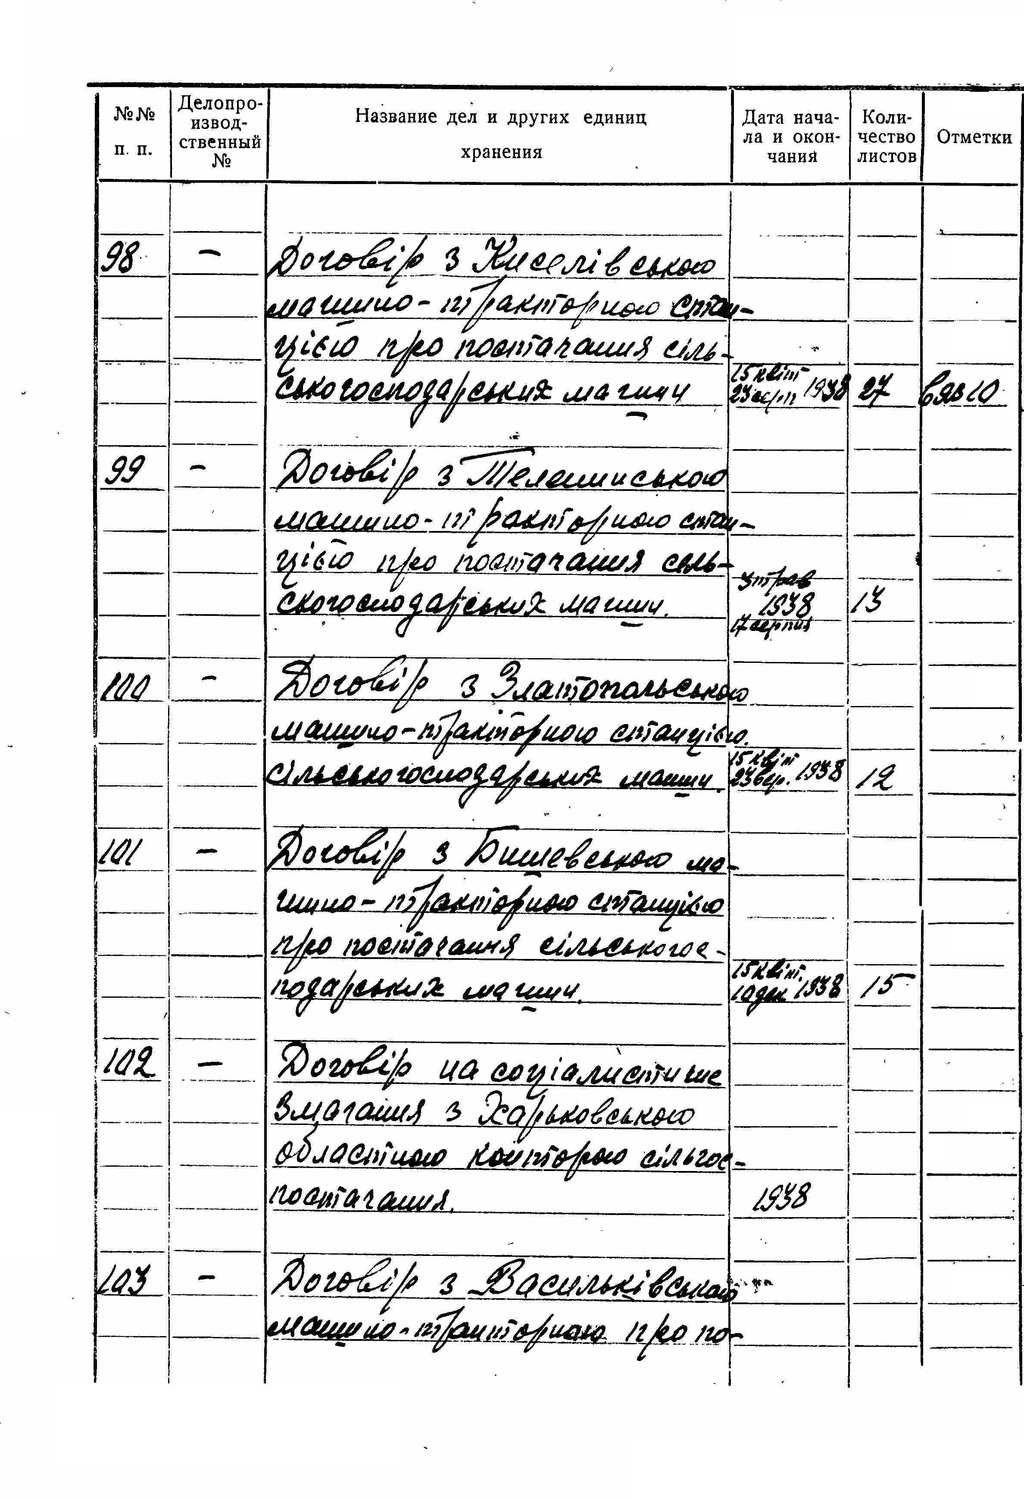 №№ п. п. Делопроизводственный № Название дел и других единиц хранения Дата начала и окончания Количество листов Отметки
98 — Договір з Киселівською
машино-тракторною стан-
цією про постачання сіль-
ськогосподарських машин 15 квіт 23 серп 1938 27
99 — Договір з
машино-тракторною стан-
цією про постачання сель-
скогосподарських машин. 3 трав 1938 17 серпня 13
100 — Договір з Златопольською
машино-тракторною станцією
сільськогосподарських машин. 15 квіт 23 вер. 1938 12
101 — Договір з Бишевською ма-
шино-тракторною станцією
про постачання сільськогос-
подарських машин. 15 квіт. 10 дек 1938 15
102 — Договір на соціалистичне
змагання з Харьковською
областною конторою сільгос-
постачання. 1938
103 — Договір з Васильківською
машино-тракторною про по-